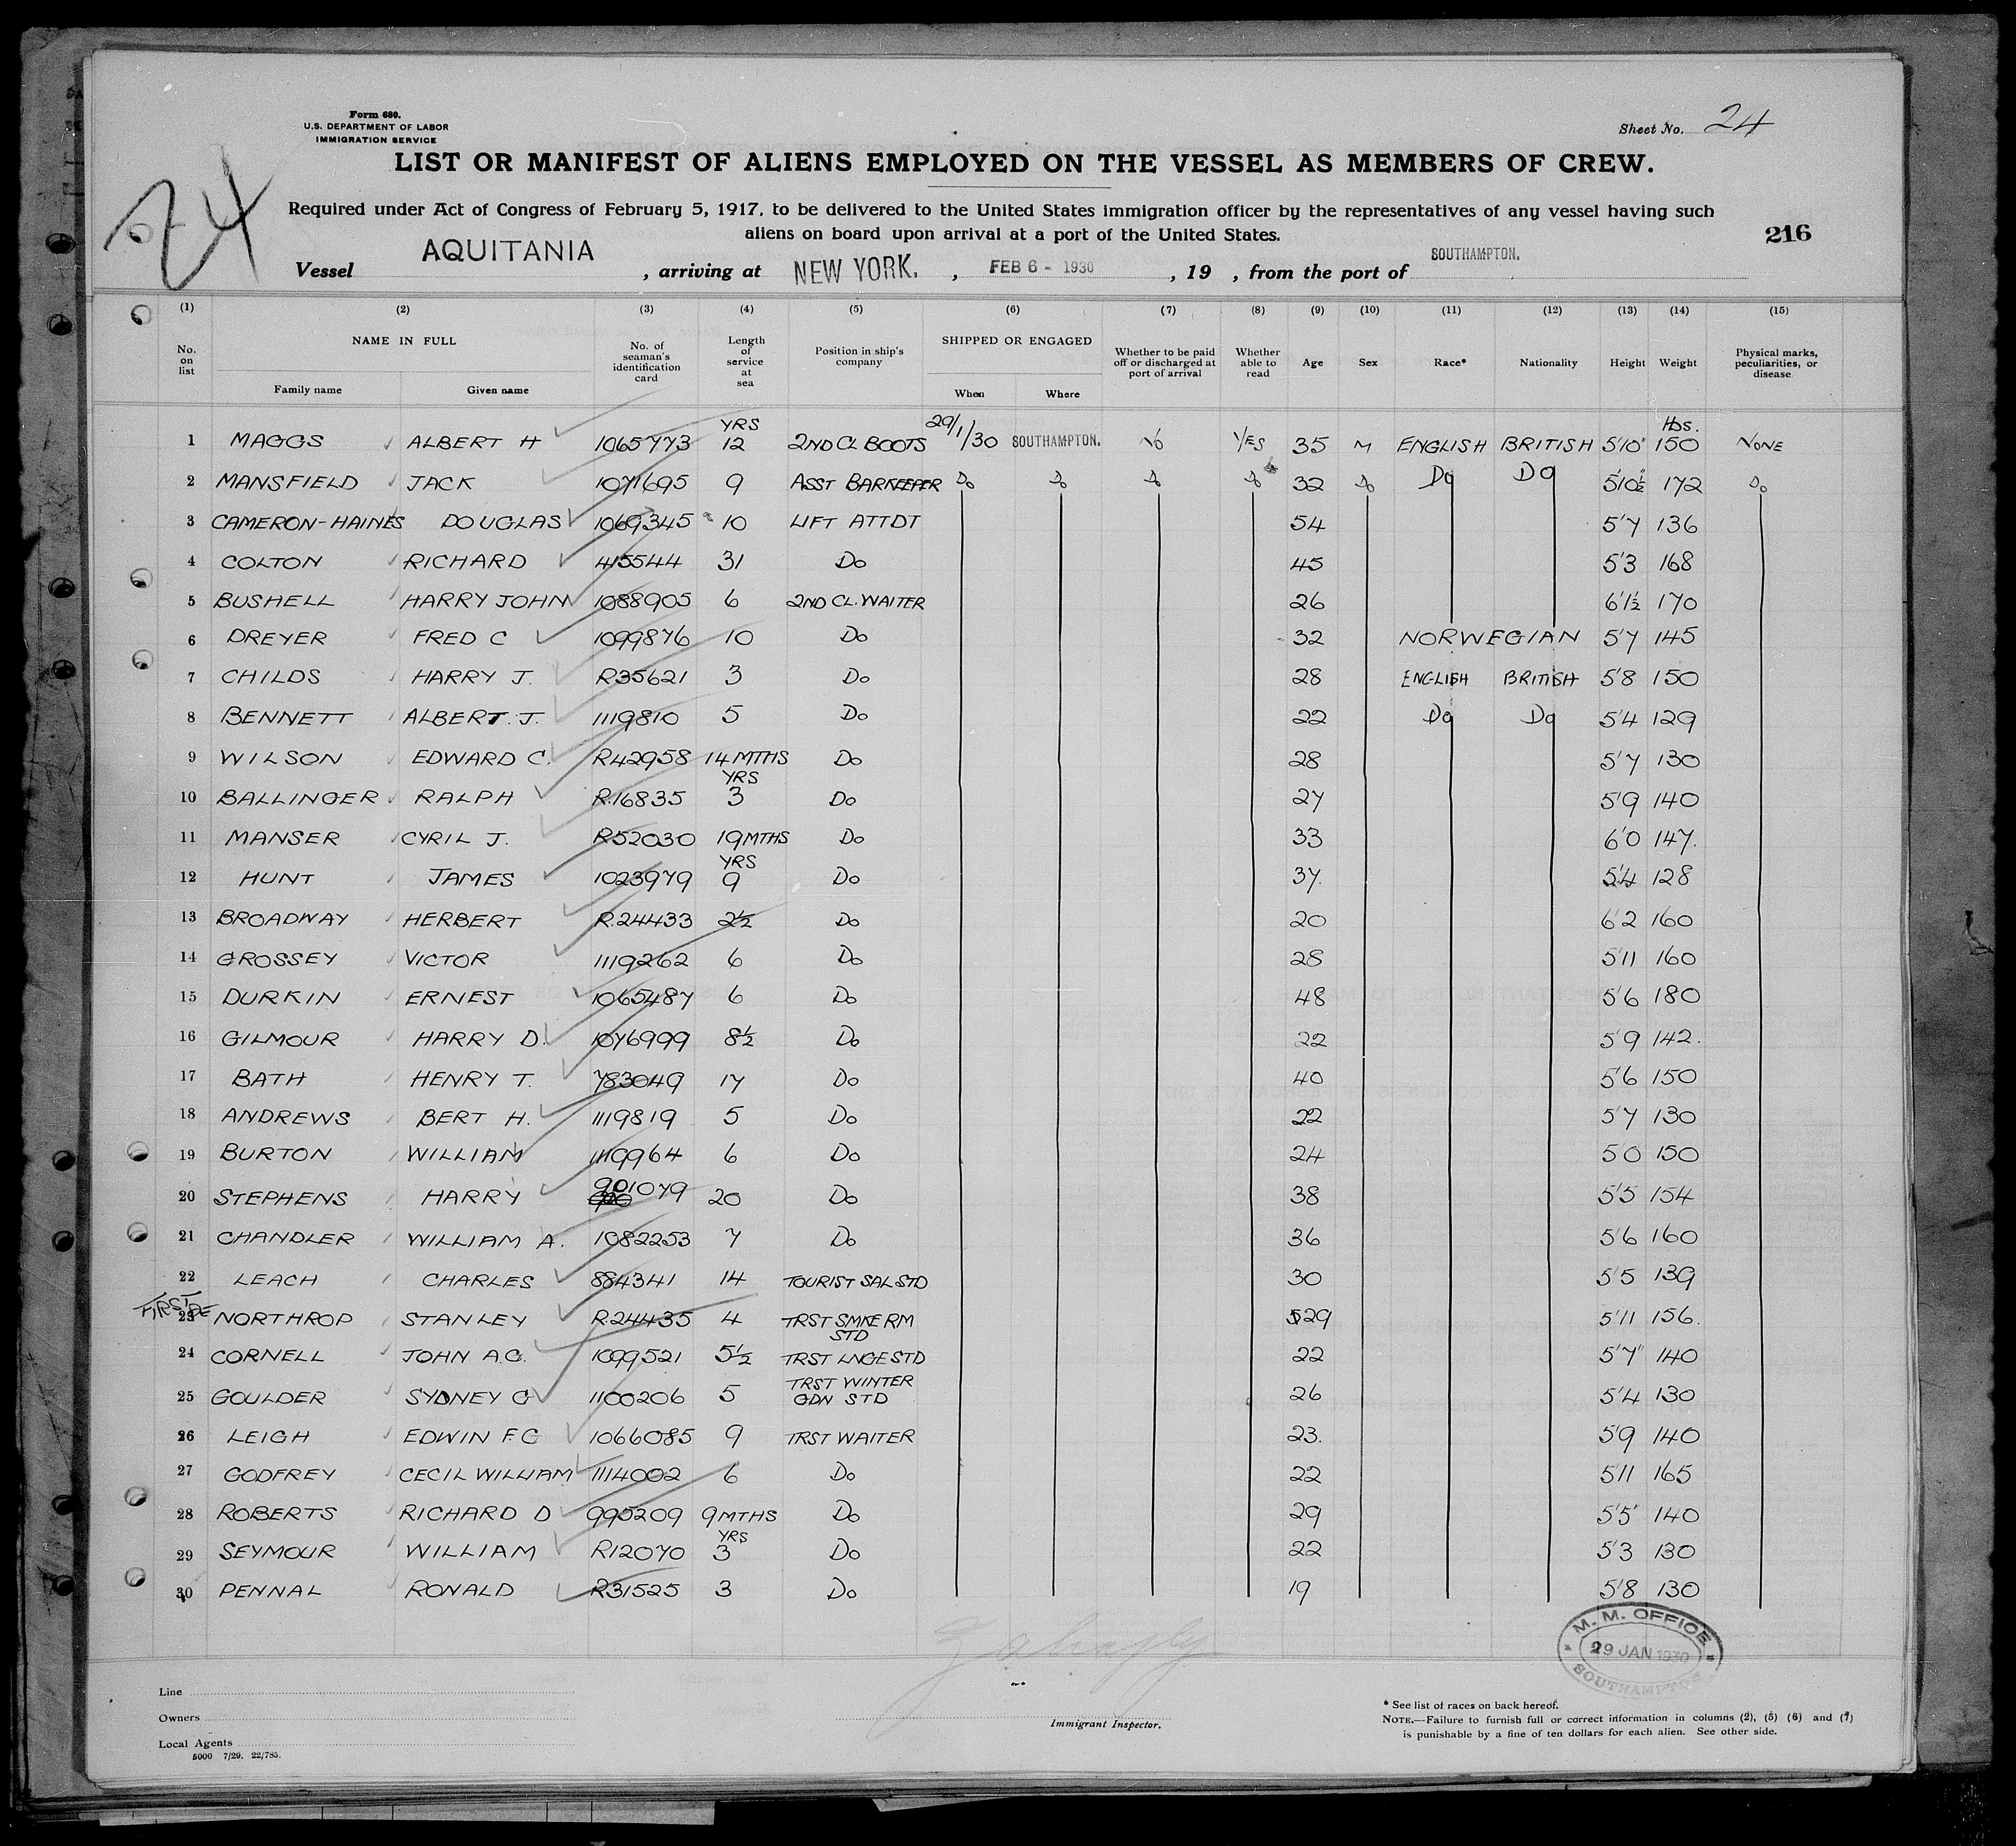 Form 680.
U.S. DEPARTMENT OF LABOR
IMMIGRATION SERVICE
Sheet No. 24
LIST OR MANIFEST OF ALIENS EMPLOYED ON THE VESSEL AS MEMBERS OF CREW.
24
Required under Act of Congress of February 5, 1917, to be delivered to the United States immigration officer by the representatives of any vessel having such
aliens on board upon arrival at a port of the United States.
216
Vessel AQUITANIA , arriving at NEW YORK. , FEB 6 - 1930 , 19 , from the port of SOUTHAMPTON.
(1) (2) (3) (4) (5) (6) (7) (8) (9) (10) (11) (12) (13) (14) (15)
No. on list NAME IN FULL Family name Given name No. of seaman's identification card Length of service at sea Position in ship's company SHIPPED OR ENGAGED When Where Whether to be paid off or discharged at port of arrival Whether able to read Age Sex Race* Nationality Height Weight Physical marks, peculiarities, or disease
YRS lbs.
1 MAGGS ALBERT H 1065773 12 2ND CL BOOTS 29/1/30 SOUTHAMPTON. No YES 35 M ENGLISH BRITISH 5'10" 150 NONE
2 MANSFIELD JACK 1071695 9 ASST BARKEEPER Do Do Do Do 32 Do Do Do 5'10½ 172 Do
3 CAMERON-HAINES DOUGLAS 1069345 10 LIFT ATTDT 54 5'7 136
4 COLTON RICHARD 415544 31 Do 45 5'3 168
5 BUSHELL HARRY JOHN 1088905 6 2ND CL. WAITER 26 6'1½ 170
6 DREYER FRED C 1099876 10 Do 32 NORWEGIAN 5'7 145
7 CHILDS HARRY J. R35621 3 Do 28 ENGLISH BRITISH 5'8 150
8 BENNETT ALBERT. J. 1119810 5 Do 22 Do Do 5'4 129
9 WILSON EDWARD C. R42958 14 MTHS Do 28 5'7 130
10 BALLINGER RALPH R.16835 YRS 3 Do 27 5'9 140
11 MANSER CYRIL J. R52030 19 MTHS Do 33 6'0 147.
12 HUNT JAMES 1023979 YRS 9 Do 37. 5'4 128
13 BROADWAY HERBERT R.24433 2½ Do 20 6'2 160
14 GROSSEY VICTOR 1119262 6 Do 28 5'11 160
15 DURKIN ERNEST 1065487 6 Do 48 5'6 180
16 GILMOUR HARRY D. 1076999 8½ Do 22 5'9 142.
17 BATH HENRY T. 783049 17 Do 40 5'6 150
18 ANDREWS BERT H. 1119819 5 Do 22 5'7 130
19 BURTON WILLIAM 1119964 6 Do 24 5 0 150
20 STEPHENS HARRY 901079 20 Do 38 5'5 154
21 CHANDLER WILLIAM A. 1082253 7 Do 36 5'6 160
22 LEACH CHARLES 884341 14 TOURIST SAL STD 30 5'5 139
FIRST
23 NORTHROP STANLEY R.24435 4 TRST SMKE RM STD 29 5'11 156.
24 CORNELL JOHN A.G. 1099521 5½ TRST LNGE STD 22 5'7" 140
25 GOULDER SYDNEY G 1100206 5 TRST WINTER GDN STD 26 5'4 130
26 LEIGH EDWIN F.G 1066085 9 TRST WAITER 23. 5'9 140
27 GODFREY CECIL WILLIAM 1114002 6 Do 22 5'11 165
28 ROBERTS RICHARD D 995209 9 MTHS Do 29 5'5" 140
29 SEYMOUR WILLIAM R12070 YRS 3 Do 22 5'3 130
30 PENNAL RONALD R31525 3 Do 19 5'8 130
M. M. OFFICE
29 JAN 1930
SOUTHAMPTON
Line
Owners
Local Agents
5000 7/29. 22/785.
Immigrant Inspector.
* See list of races on back hereof.
NOTE.—Failure to furnish full or correct information in columns (2), (5) (6) and (7)
is punishable by a fine of ten dollars for each alien. See other side.